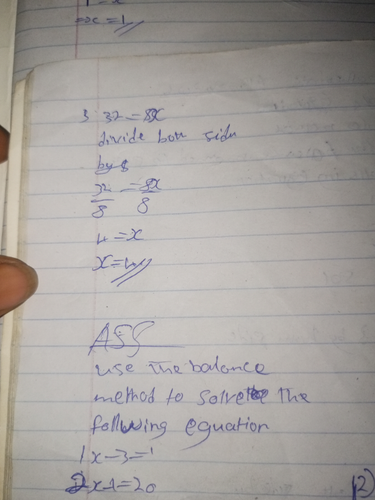 x = 1
3 32 = 8x
divide both side
by 8
32 = 8x
8 8
4 = x
x = 4
ASS
use the balance
method to solve the
following equation
1 x - 3 = 1
2 x - 1 = 20